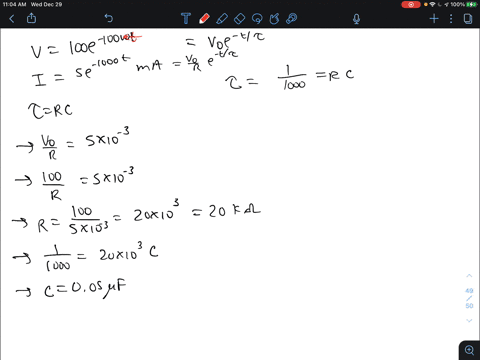 11:04 AM Wed Dec 29
V = 100e^-1000t = V₀e^-t/τ
I = 5e^-1000t mA = V₀/R e^-t/τ
τ = 1/1000 = RC
τ=RC
→ V₀/R = 5×10^-3
→ 100/R = 5×10^-3
→ R = 100/5×10^3 = 20×10^3 = 20 kΩ
→ 1/1000 = 20×10^3 C
→ C = 0.05 μF
49
/
50